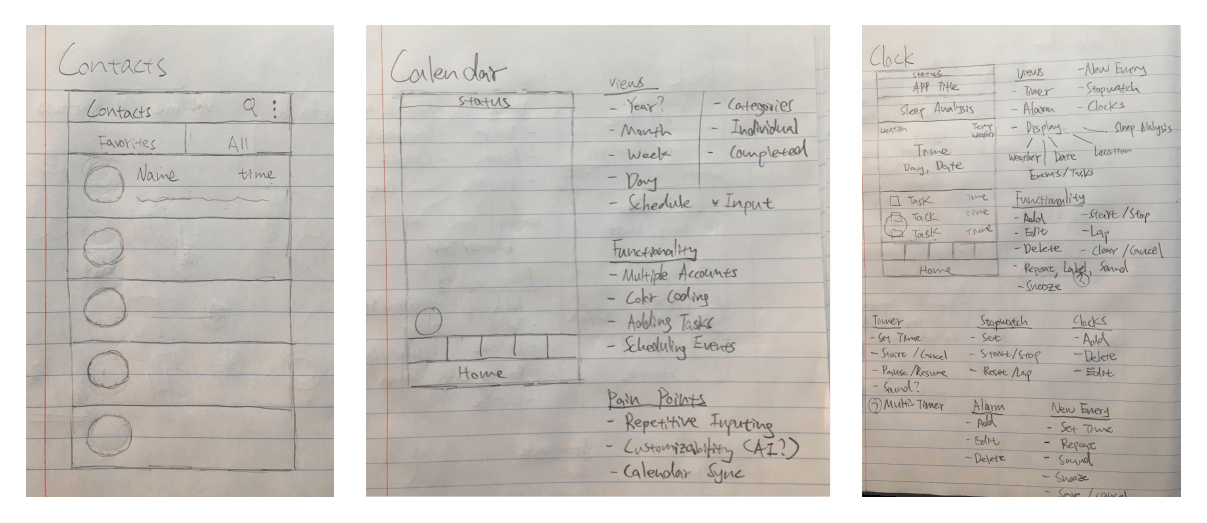 Contacts
Contacts
Favorites All
Name time
Calendar
status
Home
views
- Year?
- Month
- Week
- Day
- Schedule
- Categories
- Individual
- Completed
* Input
Functionality
- Multiple Accounts
- Color Coding
- Adding Tasks
- Scheduling Events
Pain Points
- Repetitive Inputing
- Customizability (AI?)
- Calendar Sync
Clock
status
APP Title
Sleep Analysis
Location Temp
weather
Time
Day, Date
Task Time
Task Time
Task Time
Home
Views
- Timer
- Alarm
- Display
- New Entry
- Stopwatch
- Clocks
Sleep Analysis
Weather Date Location
Events/Tasks
Functionality
- Add
- Edit
- Delete
- Repeat, Label, Sound
- Snooze
- Start/Stop
- Lap
- Clear/Cancel
Timer
- Set Time
- Start/Cancel
- Pause/Resume
- Sound?
? Multi-Timer
Stopwatch
- Set
- Start/Stop
- Reset/Lap
Clocks
- Add
- Delete
- Edit
Alarm
- Add
- Edit
- Delete
New Entry
- Set Time
- Repeat
- Sound
- Snooze
- Save/Cancel